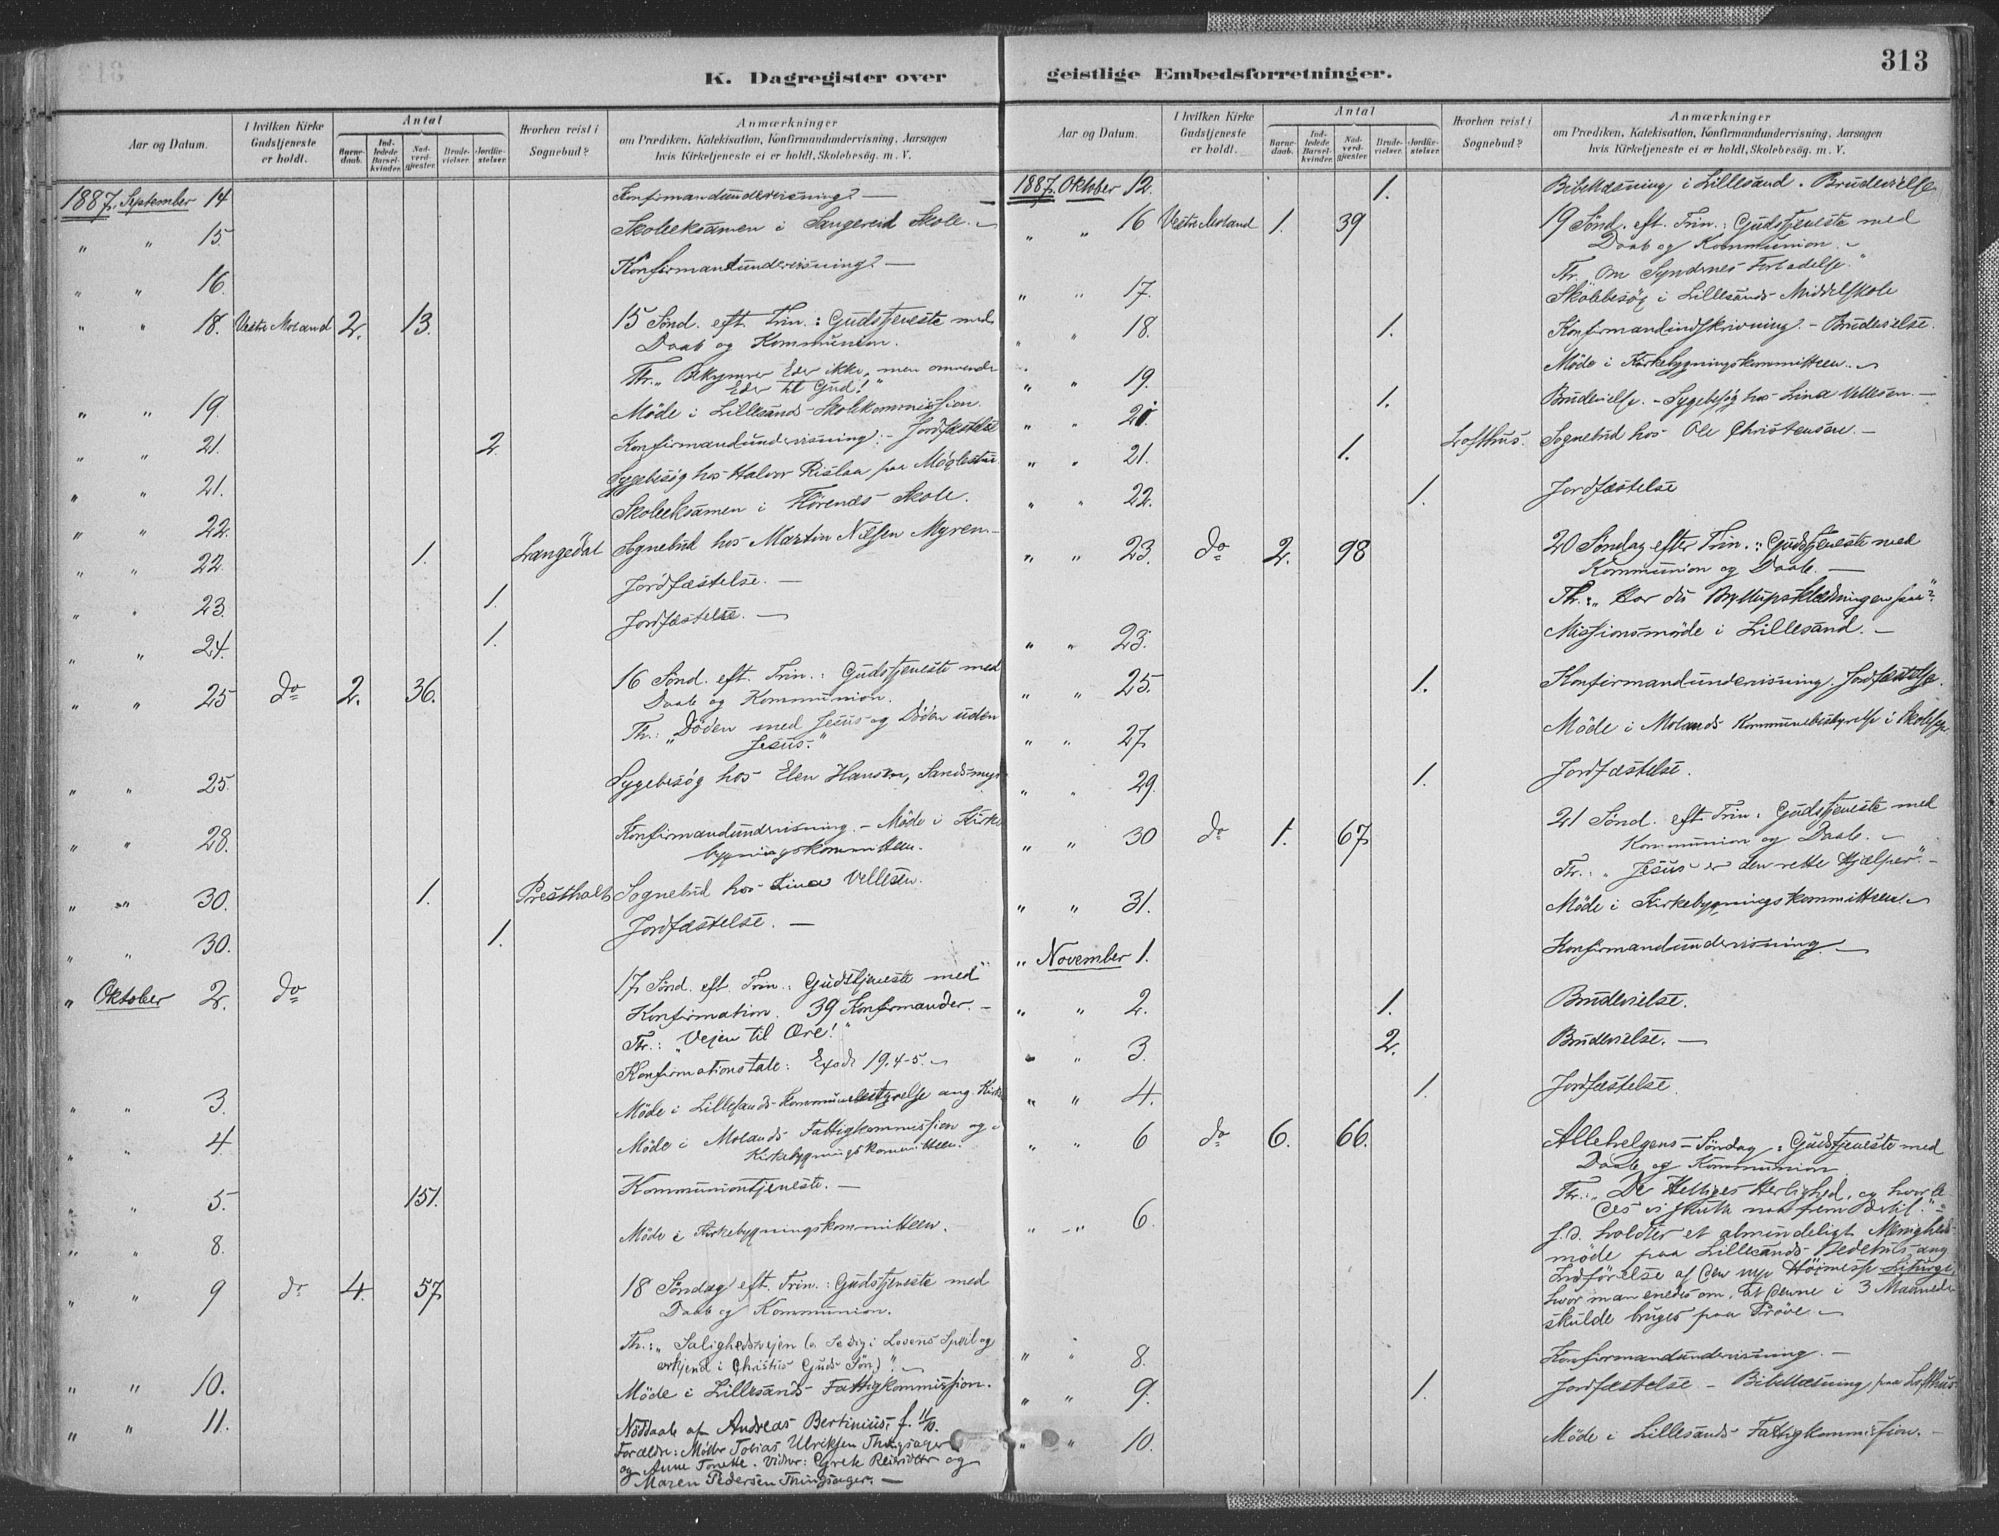 K. Dagregister over
Aar og Datum.
I hvilken Kirke Gudstjeneste er holdt.
Antal
Barnedaab.
Indledede Barselkvinder.
Nadverdgjester
Brudevielser.
Jordfæstelser.
Hvorhen reist i Sognebud?
Anmærkninger
om Prædiken, Katekisation, Konfirmandundervisning, Aarsagen
hvis Kirketjeneste ei er holdt, Skolebesøg. m. V.
1887. September 14 Konfirmandundervisning. —
" " 15. Skoleeksamen i Sangereid Skole. —
" " 16. Konfirmandundervisning. —
" " 18. Vestre Moland 2. 13. 15 Sønd. eft. Trin.: Gudstjeneste med
Daab og Kommunion.
Th. „Bekymrer Eder ikke, men omvender
Eder til Gud!"
" " 19. Møde i Lillesands Skolekommission.
" " 21. 2. Konfirmandundervisning. – Jordfæstelse
" " 21. Sygebesøg hos Halvor Rislaa paa Møglestue
" " 22. Skoleeksamen i Hørends Skole.
" " 22. 1. Langedal Sognebud hos Martin Nilsen Myren. —
" " 23. 1. Jordfæstelse. —
" " 24. 1. Jordfæstelse. —
" " 25 do 2. 36. 16 Sønd. eft. Trin.: Gudstjeneste med
Daab og Kommunion.
Th.: „Døden med Jesus og Døden uden
Jesus."
" " 25. Sygebesøg hos Elen Hansen, Sandsmyr
" " 28. Konfirmandundervisning. – Møde i Kirke
bygningskommitteen.
" " 30. 1. Prestholt Sognebud hos Lina Vellesen.
" " 30. 1. Jordfæstelse. —
" Oktober 2. do 17. Sønd. eft. Trin.: Gudstjeneste med
Konfirmation. 39 Konfirmander. —
Th.: „Vejen til Ære!"
Konfirmationstale: Exod. 19.4-5. —
" " 3. Møde i Lillesands Kommunebestyrelse ang. Kirke
" " 4 Møde i Molands Fattigkommission og i
Kirkebygningskommitteen.
" " 5. 151. Kommuniontjeneste. —
" " 8. Møde i Kirkebygningskommitteen.
" " 9 do 4. 57. 18 Søndag eft. Trin.: Gudstjeneste med
Daab og Kommunion.
Th.: „Salighedsvejen (a. Se dig i Lovens Speil og
erkjend i Christus Guds Søn)". —
" " 10. Møde i Lillesands Fattigkommission.
" " 11. Nøddaab af Andreas Bertinius, f. 11/10.
Forældre: Matr. Tobias Ulriksen Thingsager
og Anne Tonette. Vidner: Grete Reiersdtr og
Maren Pedersen Thingsager. —
geistlige Embedsforretninger.
313
Aar og Datum.
I hvilken Kirke Gudstjeneste er holdt.
Antal
Barnedaab.
Indledede Barselkvinder.
Nadverdgjester
Brudevielser.
Jordfæstelser.
Hvorhen reist i Sognebud?
Anmærkninger
om Prædiken, Katekisation, Konfirmandundervisning, Aarsagen
hvis Kirketjeneste ei er holdt, Skolebesøg. m. V.
1887. Oktober 12. 1. Bibellæsning i Lillesand. Brudevielse
" " 16 Vestre Moland 1. 39 19 Sønd. eft. Trin.: Gudstjeneste med
Daab og Kommunion. —
Th. „Om Syndernes Forladelse."
" " 17. Skolebesøg i Lillesands Middelskole
" " 18. 1. Konfirmandindskrivning. – Brudevielse.
" " 19. Møde i Kirkebygningskommitteen. —
" " 20. 1. Brudevielse. – Sygebesøg hos Lina Vellesen. —
" " 21. 1. Lofthus. Sognebud hos Ole Christensen. —
" " 22. 1. Jordfæstelse
" " 23. do 2. 98 20 Søndag efter Trin.: Gudstjeneste med
Kommunion og Daab. —
Th.: „Har du Bryllupsklædningen paa"?
" " 23. Missionsmøde i Lillesand. —
" " 25. 1. Konfirmandundervisning. Jordfæstelse.
" " 27. Møde i Molands Kommunebestyrelse i
" " 29. 1. Jordfæstelse.
" " 30 do 1. 67. 21 Sønd. eft. Trin.: Gudstjeneste med
Kommunion og Daab. —
Th.: „Jesus er den rette Hjælper". —
" " 31. Møde i Kirkebygningskommitteen —
" November 1. Konfirmandundervisning —
" " 2. 1. Brudevielse.
" " 3. 2. Brudevielse. —
" " 4. 1. Jordfæstelse.
" " 6 do 6. 66. Allehelgens-Søndag: Gudstjeneste med
Daab og Kommunion.
Th.: „De Helliges Herlighed, og hvorle
des vi skulle naa frem dertil." —
" " 6. S.D. holdtes et almindeligt Menigheds
møde paa Lillesands Bedehus ang.
Indførelse af den nye Højmesse Liturgi,
hvor man enedes om, at denne i 3 Maaneder
skulde bruges paa Prøve. —
" " 8. Konfirmandundervisning. —
" " 9. 1. Jordfæstelse – Bibellæsning paa Lofthus.
" " 10. Møde i Lillesands Fattigkommission. —